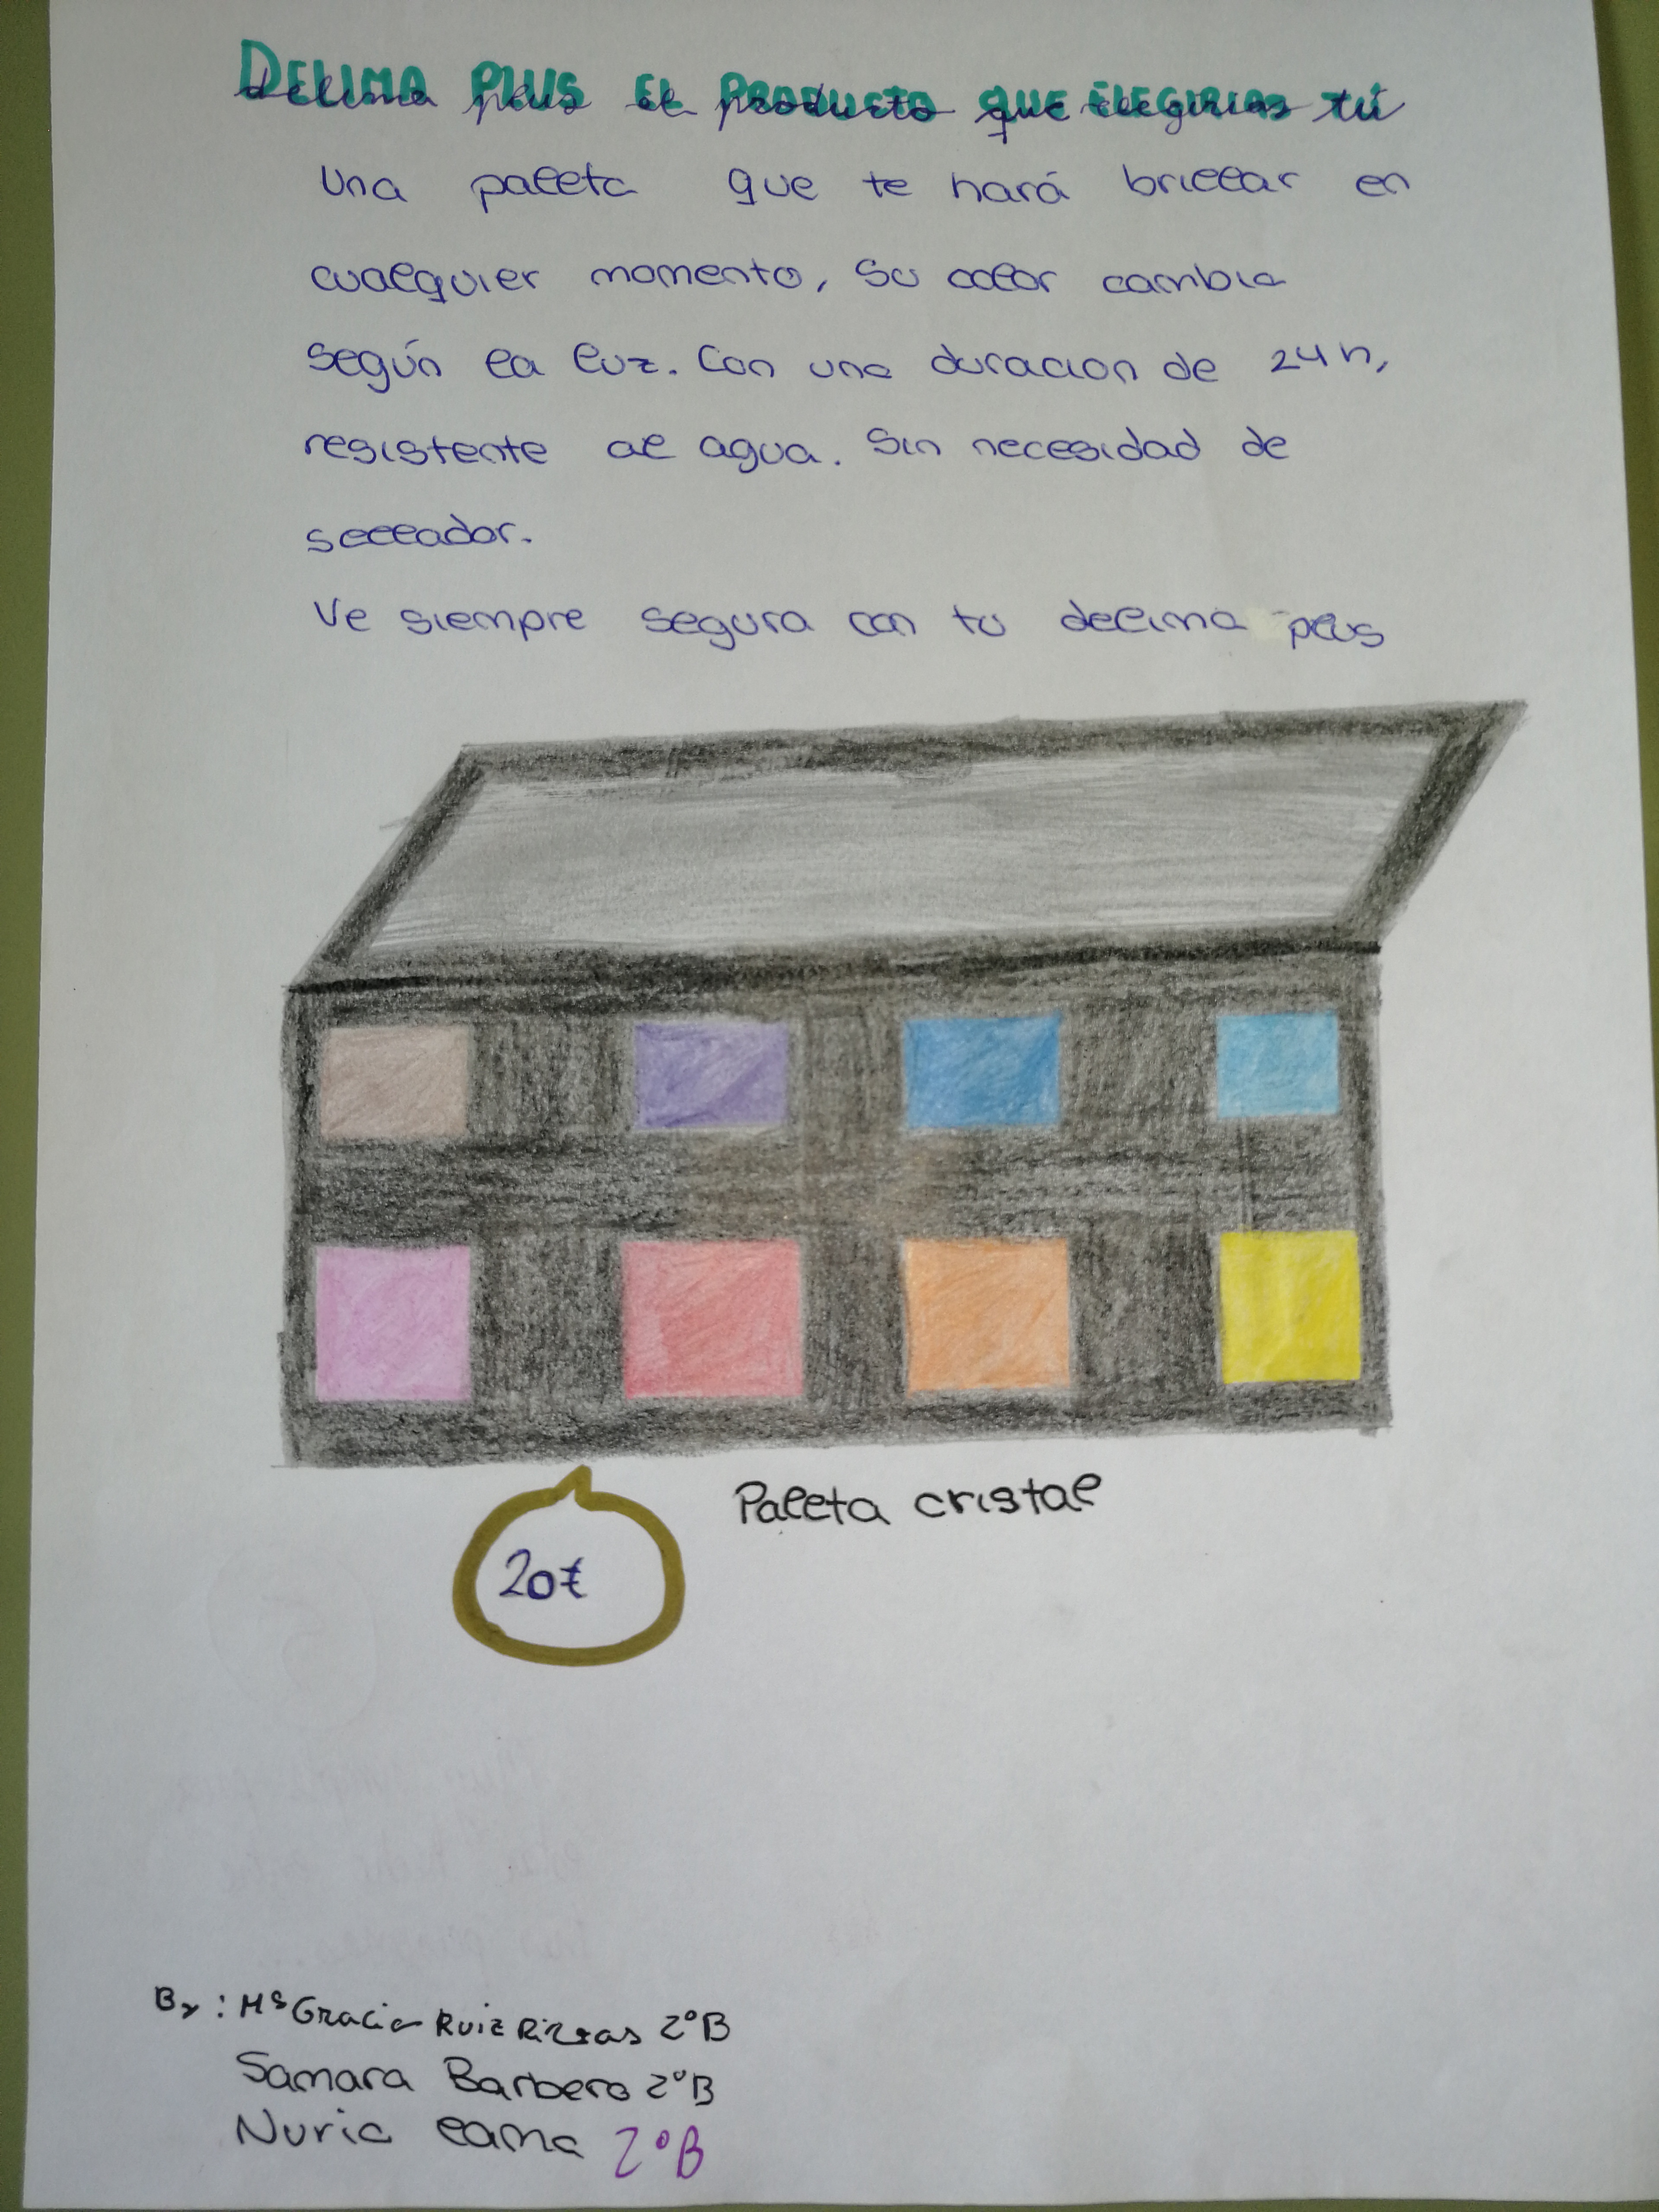 DELIMA PLUS EL PRODUCTO QUE ELEGIRIAS tú
Una paleta que te hará brillar en
cualquier momento, su color cambia
según la luz. Con una duracion de 24h,
resistente al agua. Sin necesidad de
sellador.
Ve siempre segura con tu delima plus
Paleta cristal
20€
By: Mª Gracia Ruiz 2ºB
Samara Barbero 2ºB
Nuria lama 2ºB